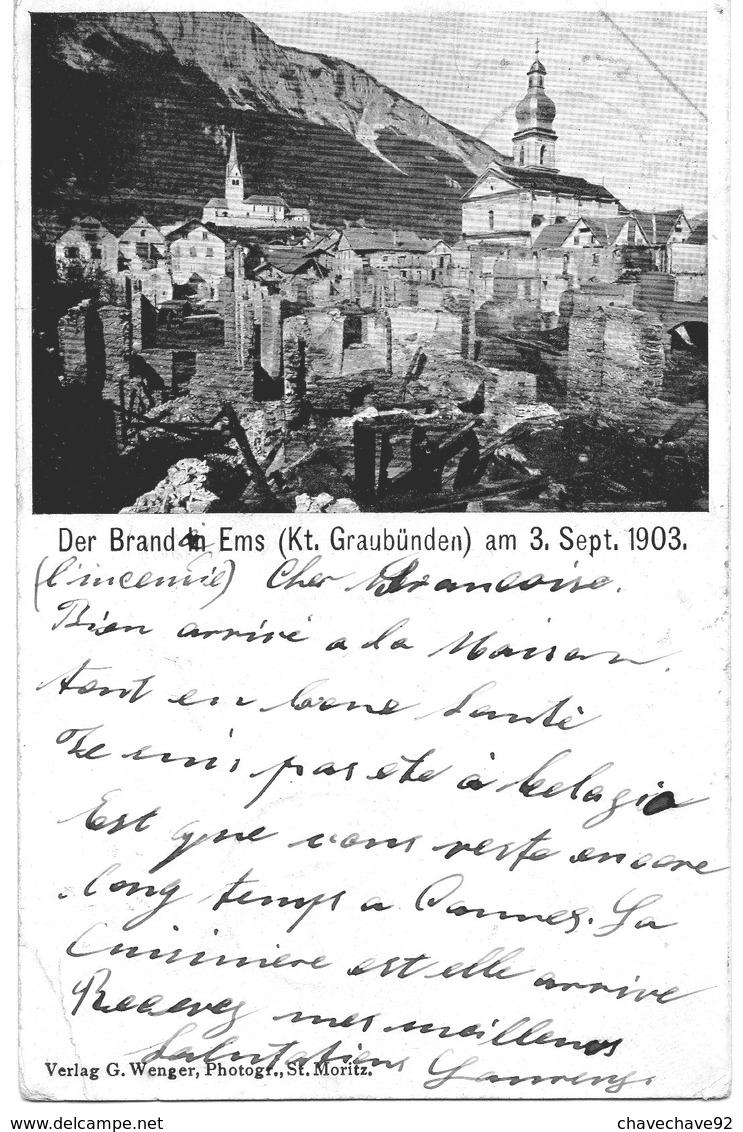 Der Brand in Ems (Kt. Graubünden) am 3. Sept. 1903.
(l'incendie) Cher Francoise.
Bien arrivé a la Maison
tout en bone Santé
Je suis pas été à belagio
Est que vous reste encore
long temps a Cannes. La
Cuisiniere est elle arrive
Recevez mes meilleures
Salutations
Verlag G. Wenger, Photogr., St. Moritz.
Laurenz.
chavechave92